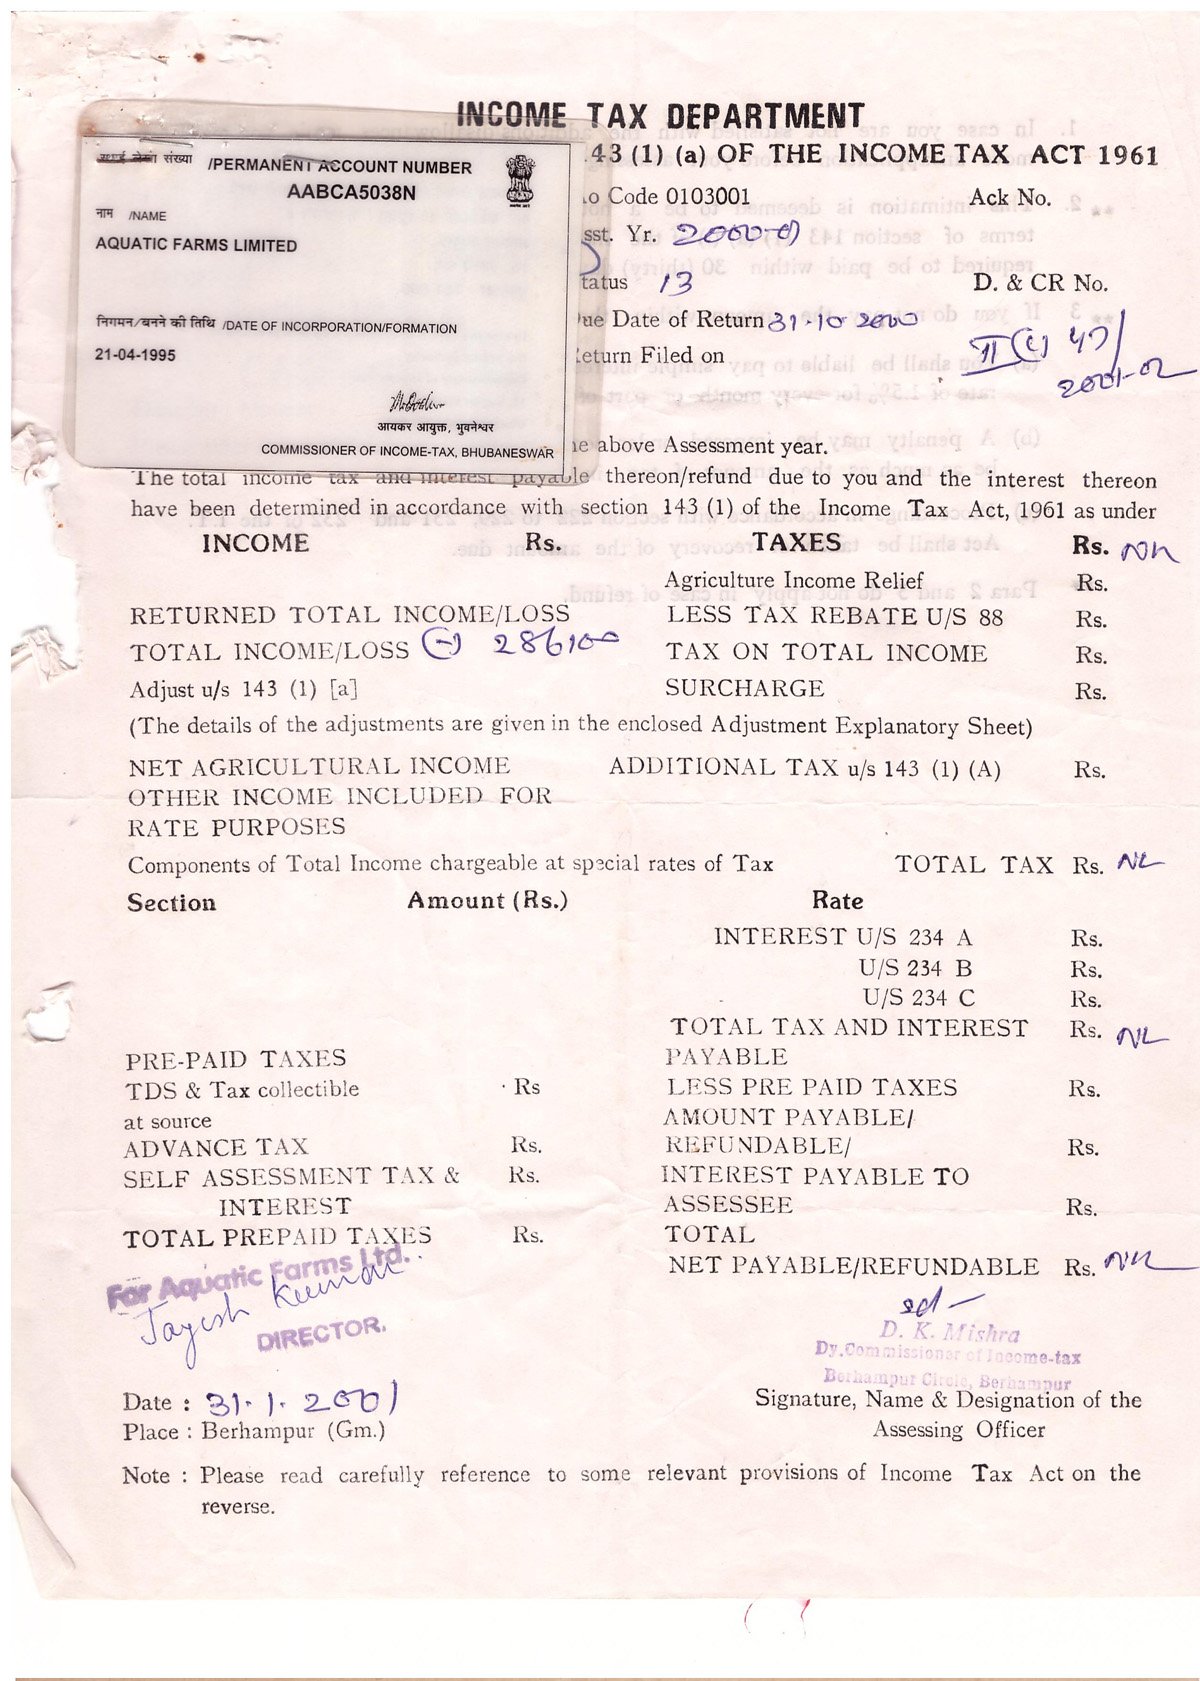 INCOME TAX DEPARTMENT
43 (1) (a) OF THE INCOME TAX ACT 1961
संख्या /PERMANENT ACCOUNT NUMBER
AABCA5038N
नाम /NAME
AQUATIC FARMS LIMITED
निगमन/बनने की तिथि /DATE OF INCORPORATION/FORMATION
21-04-1995
आयकर आयुक्त, भुवनेश्वर
COMMISSIONER OF INCOME-TAX, BHUBANESWAR
Code 0103001 Ack No.
Yr. 2000-01
13 D. & CR No.
Date of Return 31-10-2000
Filed on
2001-02
above Assessment year.
The total income tax and interest payable thereon/refund due to you and the interest thereon
have been determined in accordance with section 143 (1) of the Income Tax Act, 1961 as under
INCOME Rs. TAXES Rs. NIL
Agriculture Income Relief Rs.
RETURNED TOTAL INCOME/LOSS LESS TAX REBATE U/S 88 Rs.
TOTAL INCOME/LOSS (-) 286100 TAX ON TOTAL INCOME Rs.
Adjust u/s 143 (1) [a] SURCHARGE Rs.
(The details of the adjustments are given in the enclosed Adjustment Explanatory Sheet)
NET AGRICULTURAL INCOME ADDITIONAL TAX u/s 143 (1) (A) Rs.
OTHER INCOME INCLUDED FOR
RATE PURPOSES
Components of Total Income chargeable at special rates of Tax TOTAL TAX Rs. NIL
Section Amount (Rs.) Rate
INTEREST U/S 234 A Rs.
U/S 234 B Rs.
U/S 234 C Rs.
TOTAL TAX AND INTEREST Rs. NIL
PRE-PAID TAXES PAYABLE
TDS & Tax collectible Rs LESS PRE PAID TAXES Rs.
at source AMOUNT PAYABLE/
ADVANCE TAX Rs. REFUNDABLE/ Rs.
SELF ASSESSMENT TAX & Rs. INTEREST PAYABLE TO
INTEREST ASSESSEE Rs.
TOTAL PREPAID TAXES Rs. TOTAL
NET PAYABLE/REFUNDABLE Rs. NIL
For Aquatic Farms Ltd.
Jayesh Kumar
DIRECTOR.
sd-
D. K. Mishra
Dy.Commissioner of Income-tax
Berhampur Circle, Berhampur
Date : 31.1.2001 Signature, Name & Designation of the
Place : Berhampur (Gm.) Assessing Officer
Note : Please read carefully reference to some relevant provisions of Income Tax Act on the
reverse.